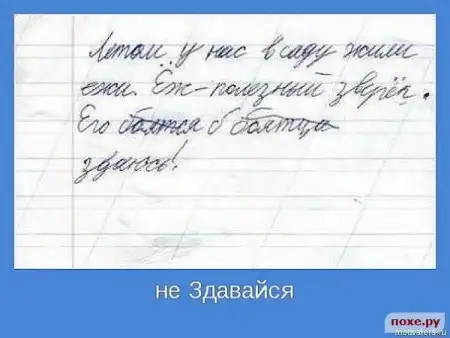 Летом у нас в саду жили
ежи. Ёж - полезный зверёк.
Его болтся б болтца
здаюсь!
не Здавайся
похе.ру
motivators.ru